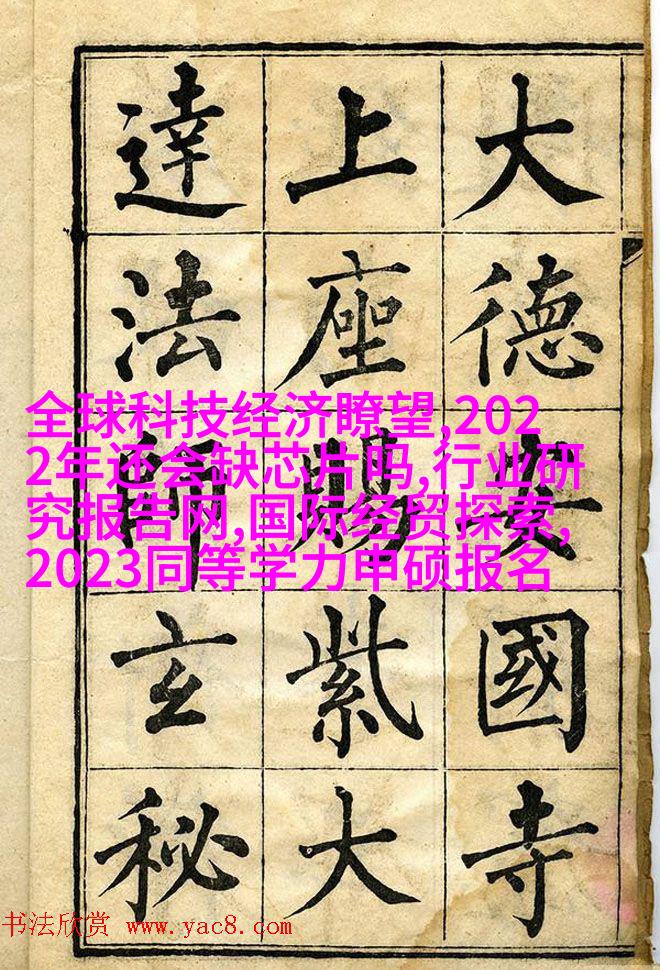 大德安國寺
上座賜紫大
達法師玄秘
全球科技经济瞭望,202
2年还会缺芯片吗,行业研
究报告网,国际经贸探索,
2023同等学力申硕报名
书法欣赏 www.yac8.com